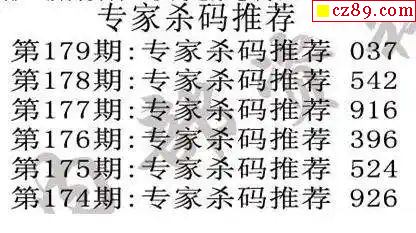 cz89.com
专家杀码推荐
第179期:专家杀码推荐 037
第178期:专家杀码推荐 542
第177期:专家杀码推荐 916
第176期:专家杀码推荐 396
第175期:专家杀码推荐 524
第174期:专家杀码推荐 926